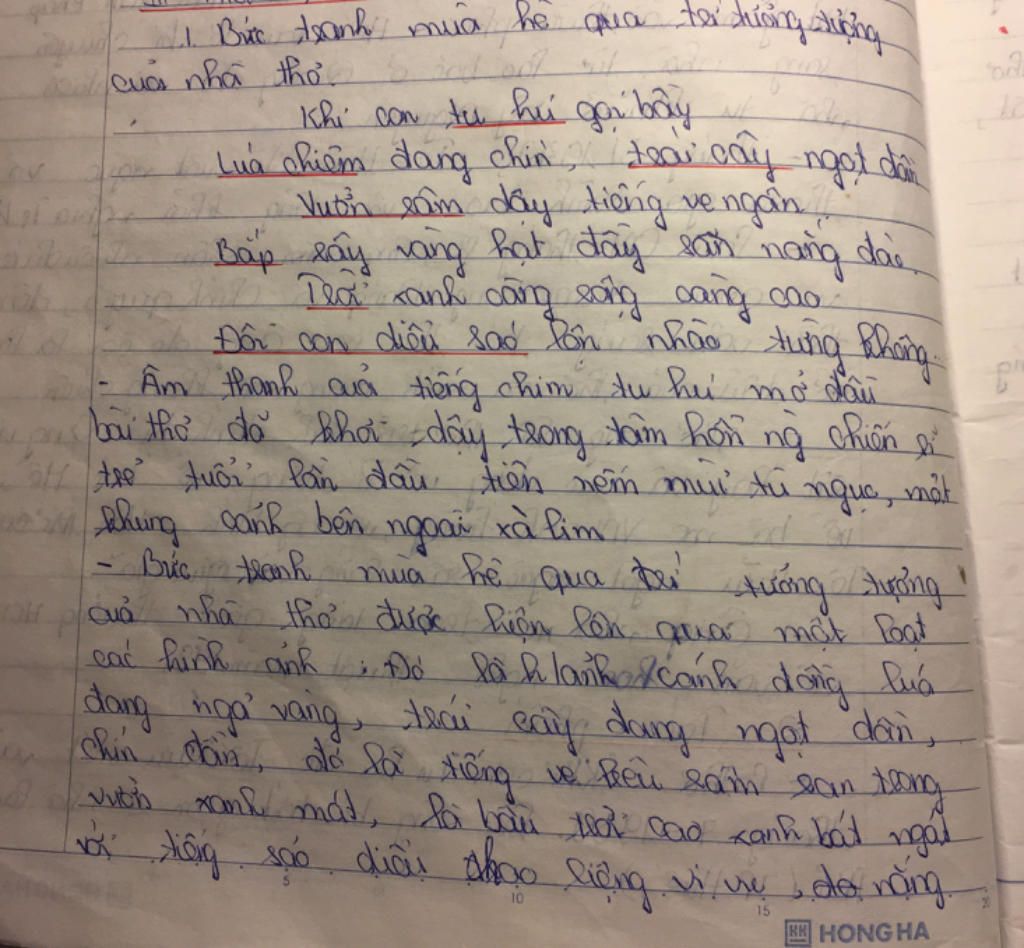 1.1. Bức tranh mùa hè qua trí tưởng tượng
của nhà thơ.
Khi con tu hú gọi bầy
Lúa chiêm đang chín, trái cây ngọt dần
Vườn râm dậy tiếng ve ngân
Bắp rây vàng hạt đầy sân nắng đào.
Trời xanh càng rộng càng cao
Đôi con diều sáo lộn nhào từng không.
- Âm thanh của tiếng chim tu hú mở đầu
bài thơ đã khơi dậy trong tâm hồn ng chiến sĩ
trẻ tuổi lần đầu tiên nếm mùi tù ngục, một
khung cảnh bên ngoài xà lim
- Bức tranh mùa hè qua trí tưởng tượng
của nhà thơ được hiện lên qua một loạt
các hình ảnh: Đó là h/ảnh cánh đồng lúa
đang ngả vàng, trái cây đang ngọt dần,
chín dần, đó là tiếng ve kêu râm ran trong
vườn xanh mát, là bầu trời cao xanh bát ngát
với tiếng sáo diều chao liệng vi vu, đó nắng
5 10 15 20
HONG HA